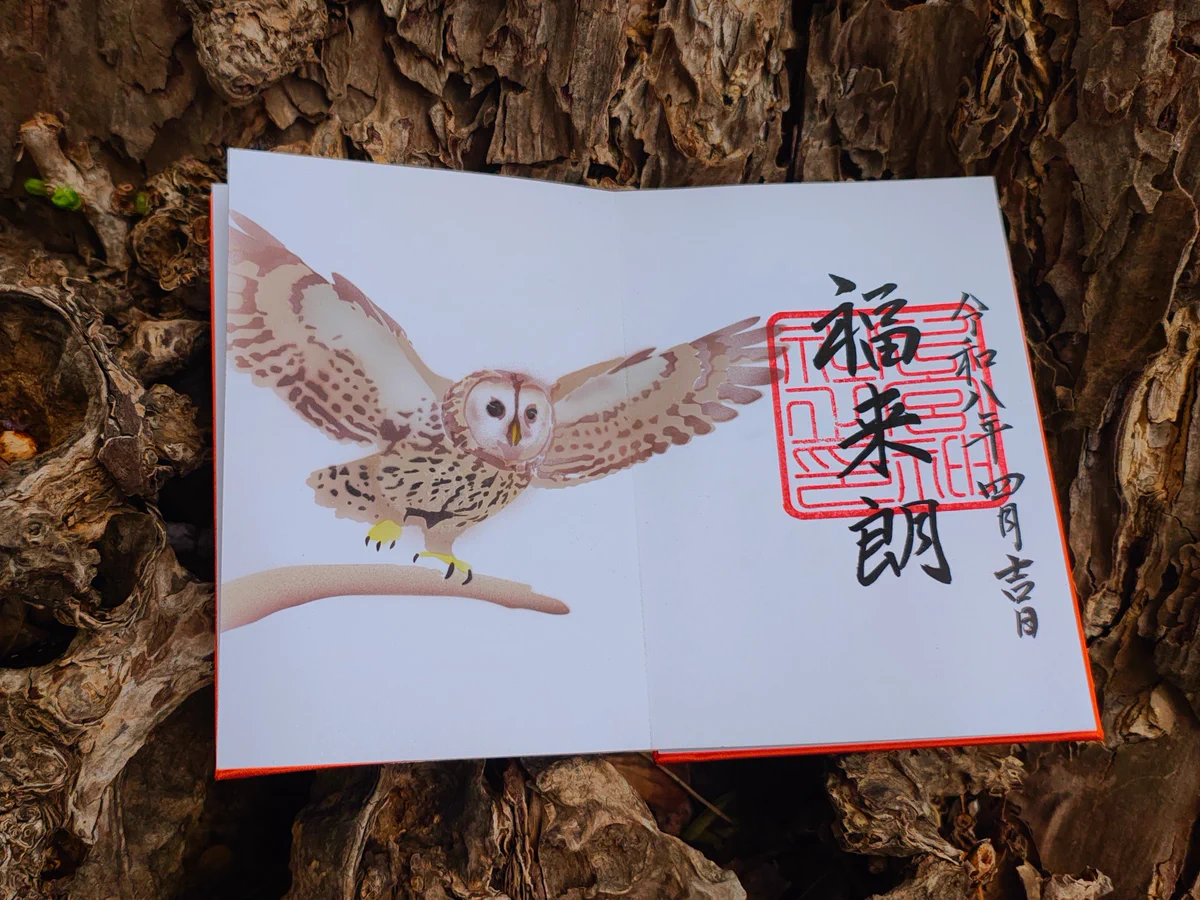 令和八年四月吉日
福来朗